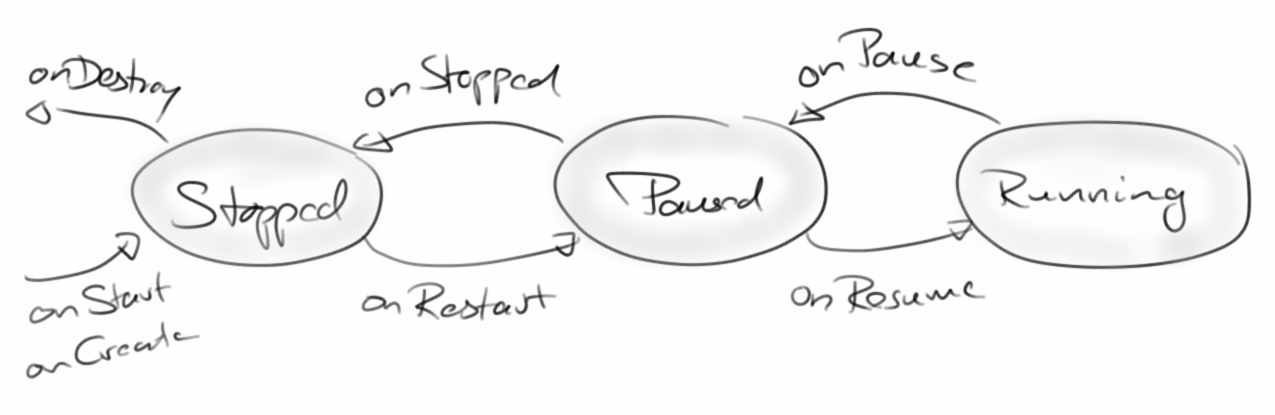 onDestroy
onStopped
onPause
Stopped
Paused
Running
onStart
onCreate
onRestart
onResume